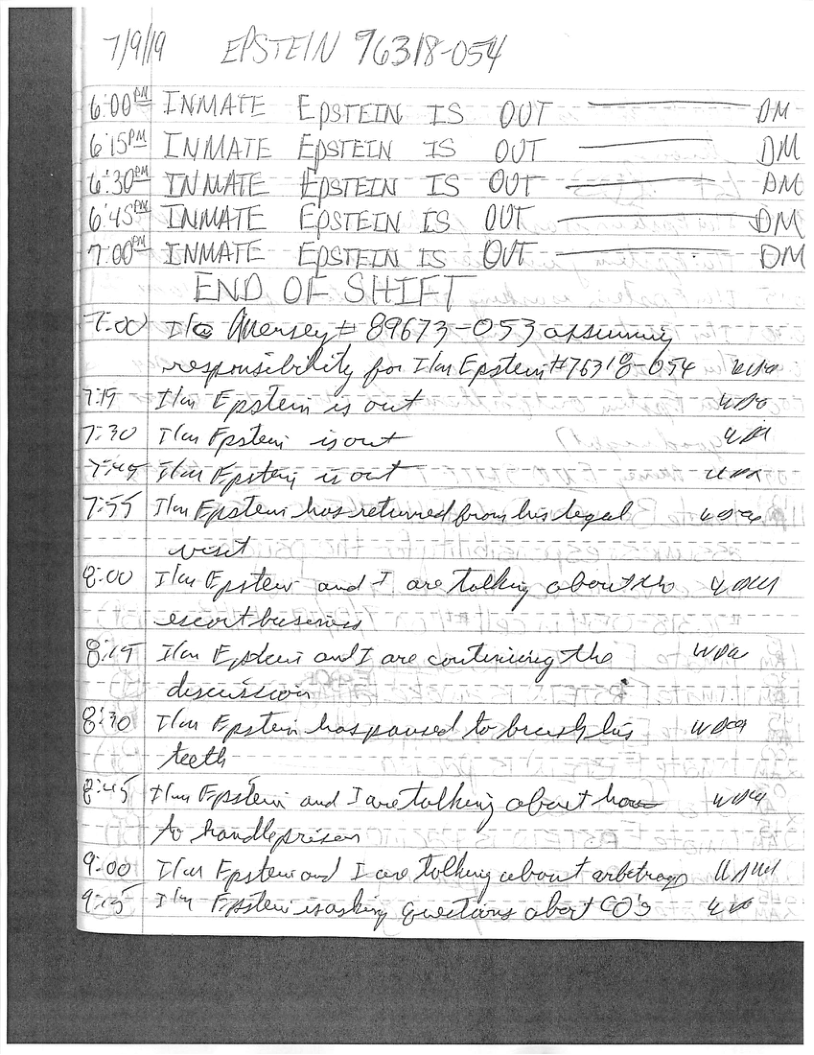 7/9/19 EPSTEIN 76318-054
6:00PM INMATE EPSTEIN IS OUT DM
6:15PM INMATE EPSTEIN IS OUT DM
6:30PM INMATE EPSTEIN IS OUT DM
6:45PM INMATE EPSTEIN IS OUT DM
7:00PM INMATE EPSTEIN IS OUT DM
END OF SHIFT
7:00 I/C # 89673-053 assuming
responsibility for I/m Epstein #76318-054
7:15 I/m Epstein is out
7:30 I/m Epstein is out
7:45 I/m Epstein is out
7:55 I/m Epstein has returned from his legal
visit
8:00 I/m Epstein and I are talking about the
escort business
8:15 I/m Epstein and I are continuing the
discussion
8:30 I/m Epstein has paused to brush his
teeth
8:45 I/m Epstein and I are talking about how
to handle prison
9:00 I/m Epstein and I are talking about arbitrage
9:15 I/m Epstein is asking questions about CO's